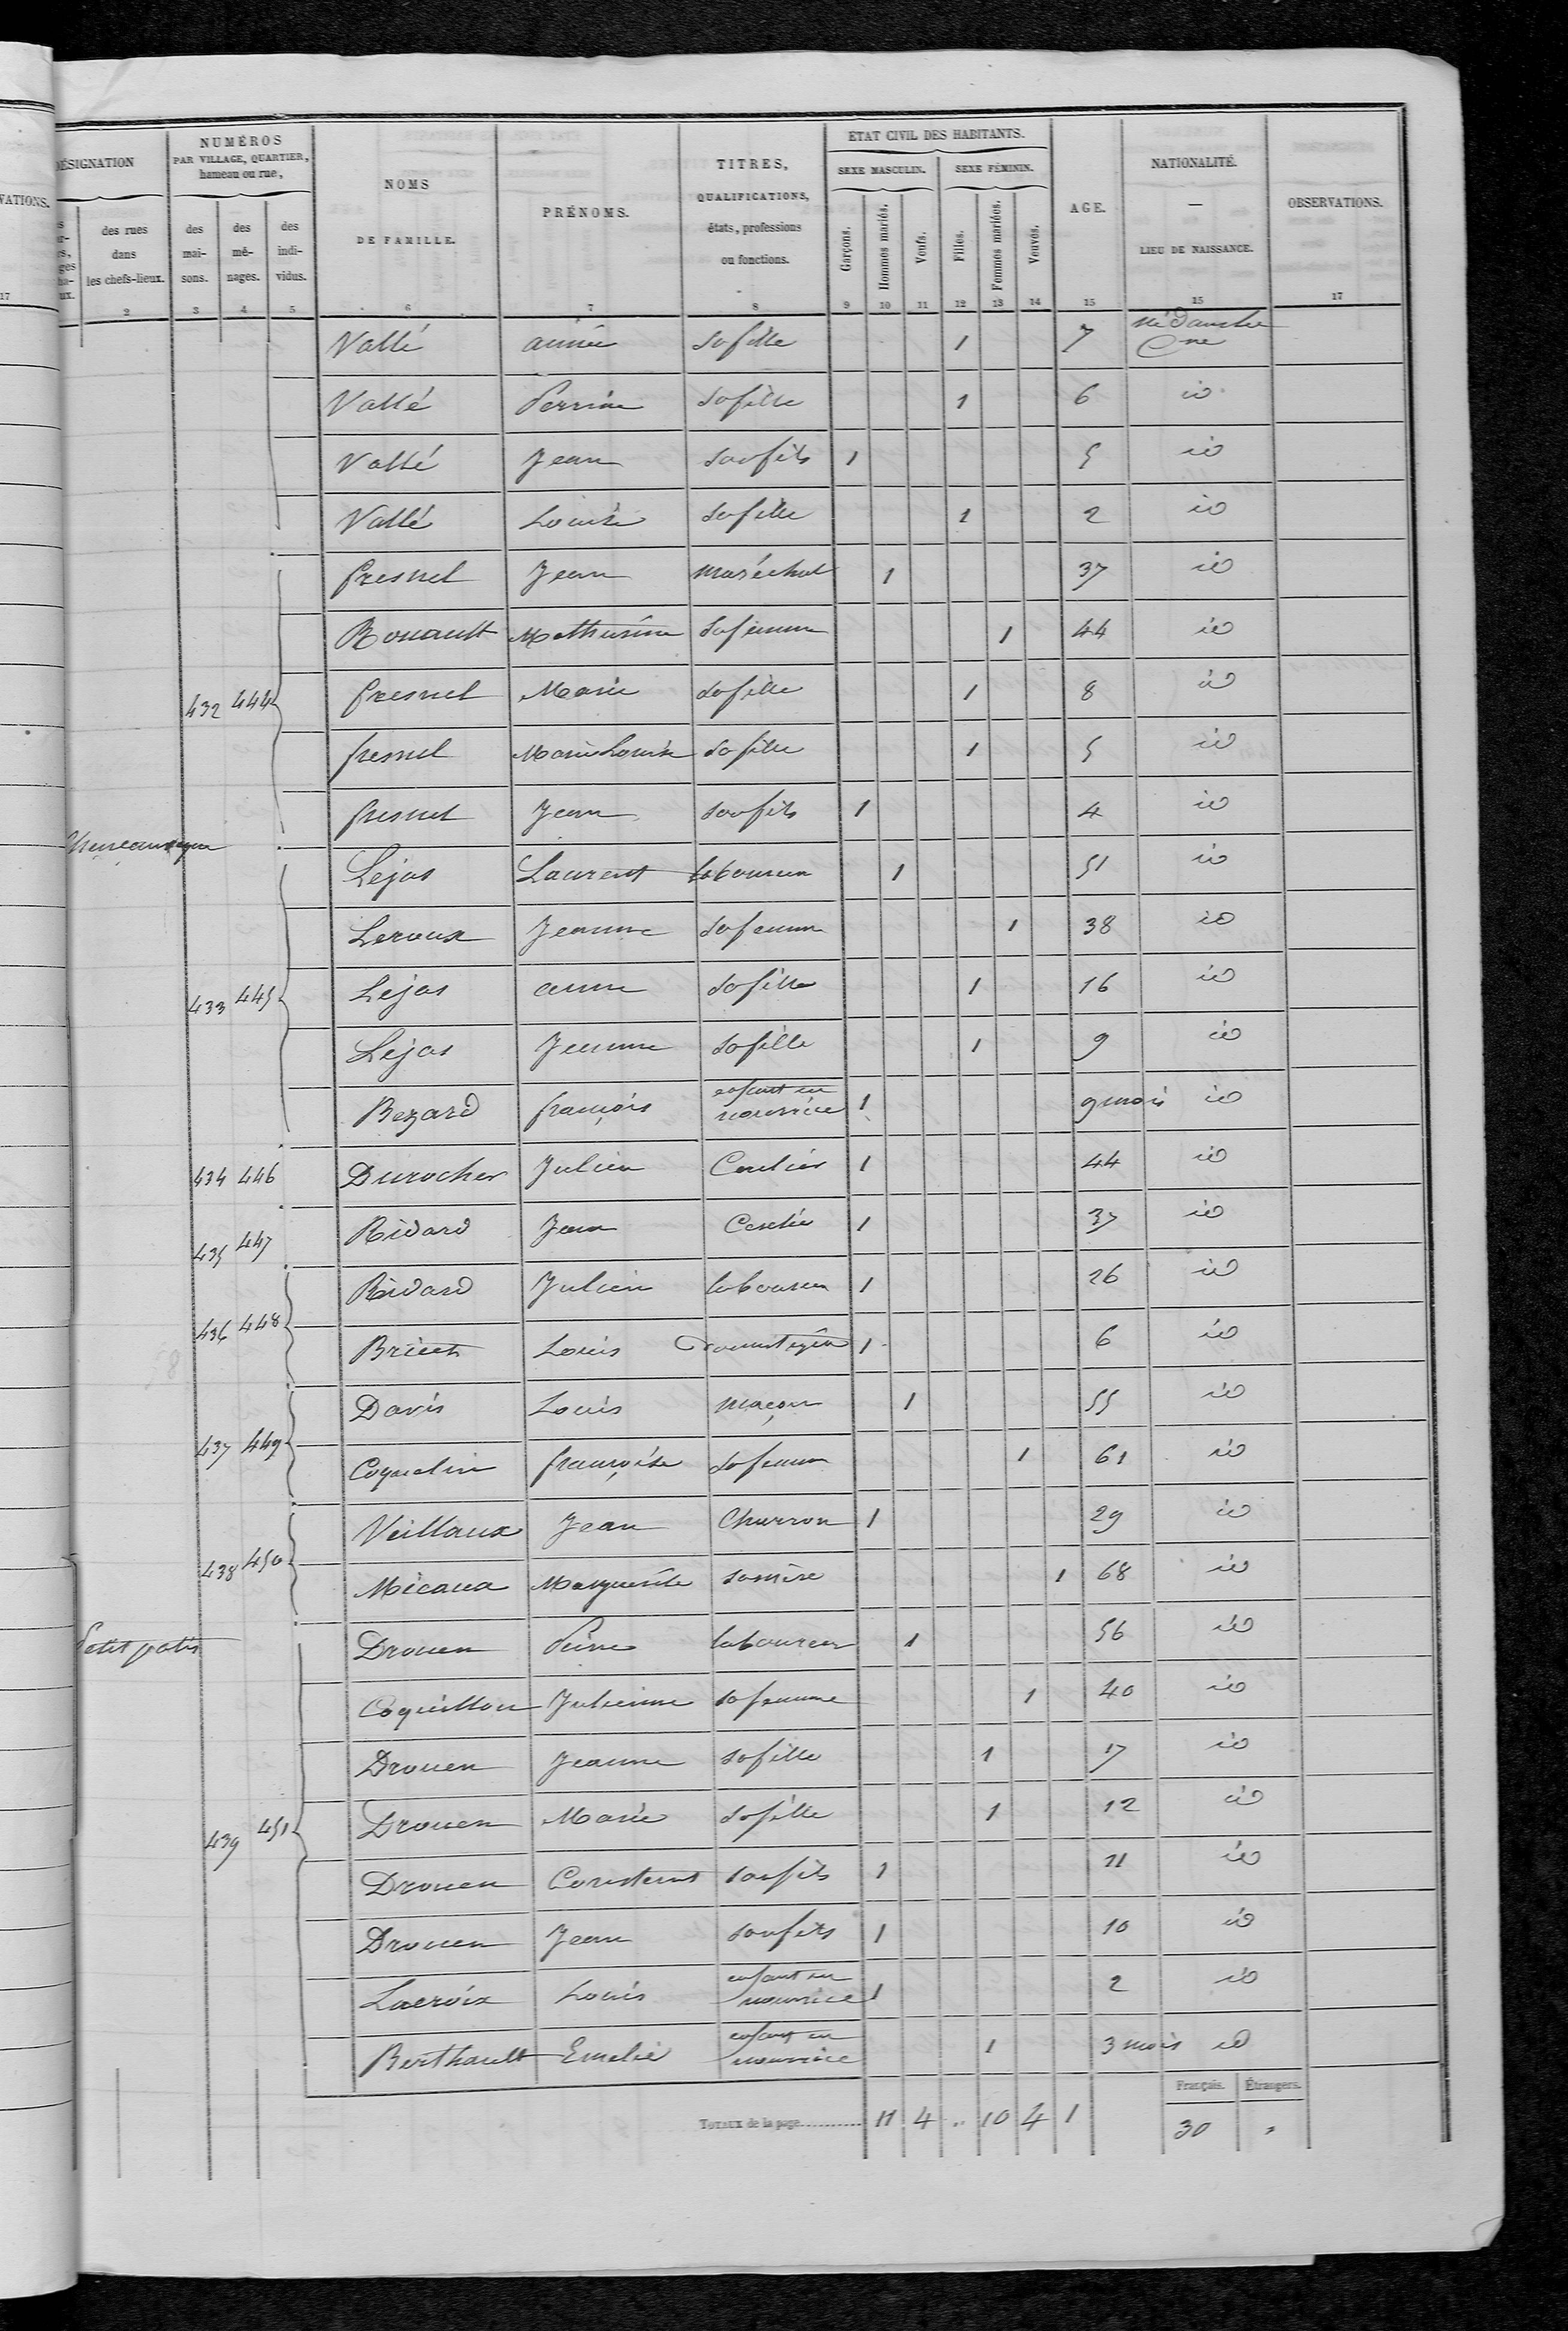 VATIONS.
17
DÉSIGNATION
des rues
dans
les chefs-lieux.
2
NUMÉROS
PAR VILLAGE, QUARTIER,
hameau ou rue,
des
mai-
sons.
3
des
mé-
nages.
4
des
indi-
vidus.
5
NOMS
DE FAMILLE.
6
PRÉNOMS.
7
TITRES,
QUALIFICATIONS,
états, professions
ou fonctions.
8
ÉTAT CIVIL DES HABITANTS.
SEXE MASCULIN.
SEXE FÉMININ.
Garçons.
9
Hommes mariés.
10
Veufs.
11
Filles.
12
Femmes mariées.
13
Veuves.
14
AGE.
15
NATIONALITÉ.
—
LIEU DE NAISSANCE.
15
OBSERVATIONS.
17
Vallé sa fille 1 7 né dans la Cne
Vallé Perrine sa fille 1 6 id
Vallé Jean son fils 1 5 id
Vallé Louise sa fille 1 2 id
fresnel Jean maréchal 1 37 id
Rouault Mathurine sa femme 1 44 id
432 444 fresnel Marie sa fille 1 8 id
fresnel Marie Louise sa fille 1 5 id
fresnel Jean son fils 1 4 id
Lejas Laurent laboureur 1 51 id
Leroux Jeanne sa femme 1 38 id
433 445 Lejas anne sa fille 1 16 id
Lejas Jeanne sa fille 1 9 id
Bezard françois enfant en nourrice 1 9 mois id
434 446 Durocher Julien 1 44 id
435 447 Ridard Jean 1 37 id
Ridard Julien laboureur 1 26 id
436 448 Louis 1 6 id
Davis Louis maçon 1 55 id
437 449 Coquelin françoise sa femme 1 61 id
Veillaux Jean Charron 1 29 id
438 450 Micaux Marguerite sa mère 1 68 id
Petit patis
Drouen Pierre laboureur 1 56 id
Coquillon Julienne sa femme 1 40 id
Drouen Jeanne sa fille 1 17 id
439 451 Drouen Marie sa fille 1 12 id
Drouen Constant son fils 1 11 id
Drouen Jean son fils 1 10 id
Lacroix Louis enfant en nourrice 1 2 id
Berthault Emelie enfant en nourrice 1 3 mois id
Français. Étrangers.
TOTAUX de la page 11 4 .. 10 4 1 30 "